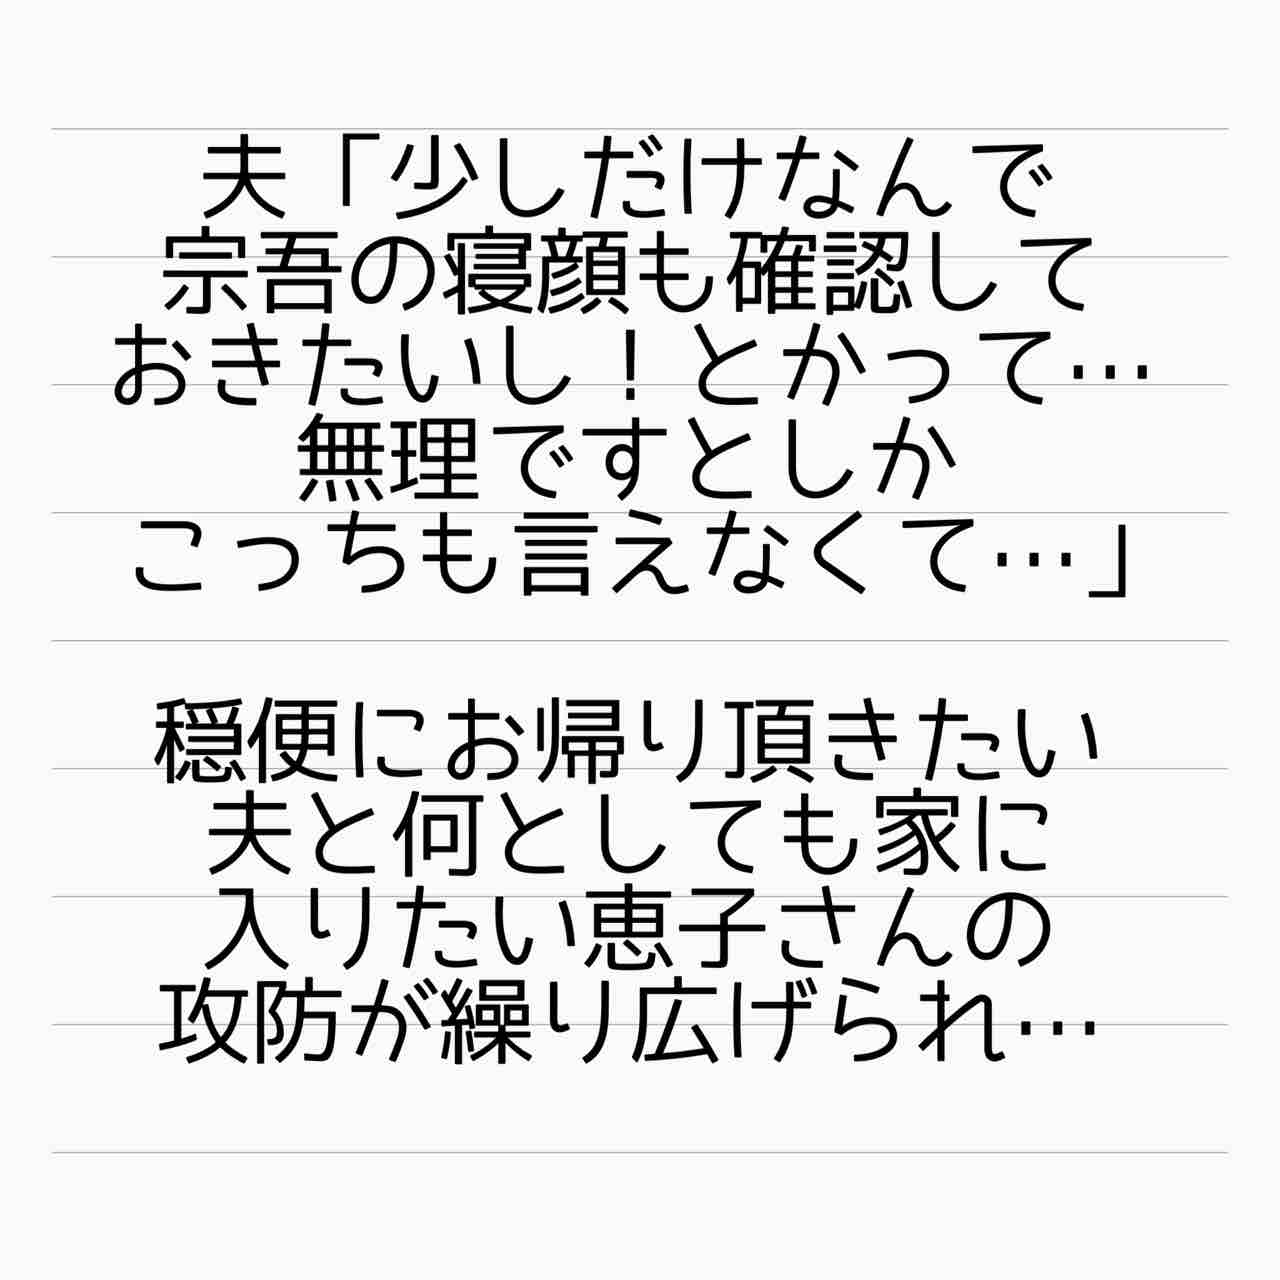 夫「少しだけなんで
宗吾の寝顔も確認して
おきたいし！とかって…
無理ですとしか
こっちも言えなくて…」
穏便にお帰り頂きたい
夫と何としても家に
入りたい恵子さんの
攻防が繰り広げられ…